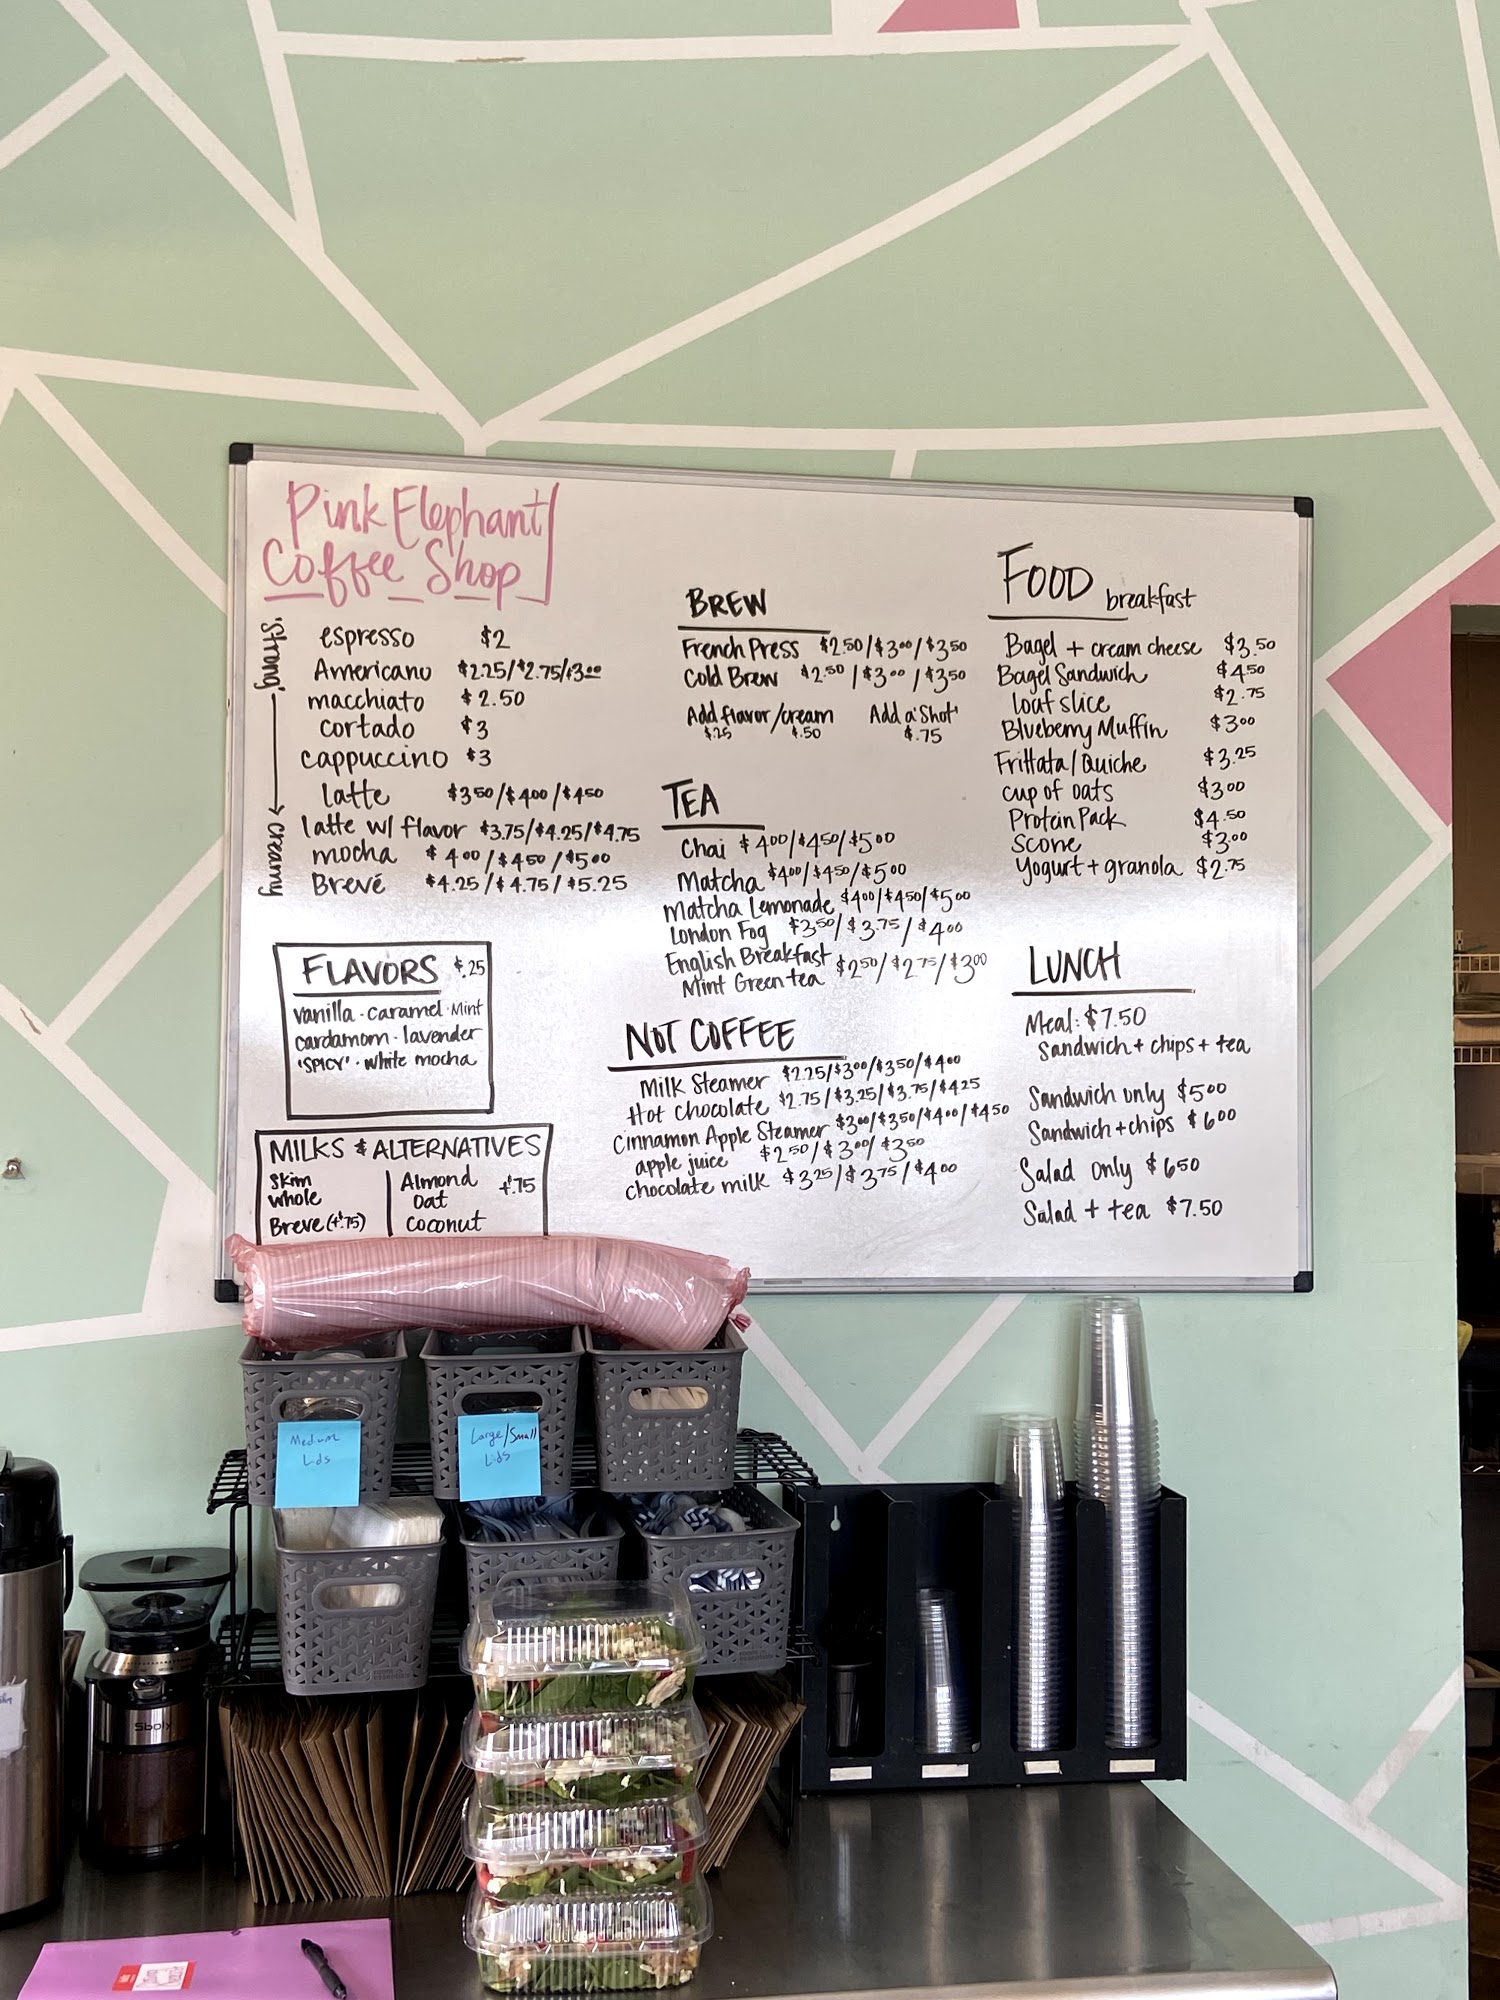 Pink Elephant
Coffee Shop
'strong' → creamy
espresso $2
Americano $2.25/$2.75/$3.00
macchiato $2.50
cortado $3
cappuccino $3
latte $3.50/$4.00/$4.50
latte w/ flavor $3.75/$4.25/$4.75
mocha $4.00/$4.50/$5.00
Brevé $4.25/$4.75/$5.25
FLAVORS $.25
vanilla · caramel · Mint
cardamom · lavender
'SPICY' · white mocha
MILKS & ALTERNATIVES
Skim
whole
Breve (+$.75)
Almond
oat
coconut
+$.75
BREW
French Press $2.50/$3.00/$3.50
Cold Brew $2.50/$3.00/$3.50
Add flavor/cream Add a 'Shot'
$.25 $.50 $.75
TEA
Chai $4.00/$4.50/$5.00
Matcha $4.00/$4.50/$5.00
Matcha Lemonade $4.00/$4.50/$5.00
London Fog $3.50/$3.75/$4.00
English Breakfast
Mint Green tea $2.50/$2.75/$3.00
NOT COFFEE
Milk Steamer $2.25/$3.00/$3.50/$4.00
Hot chocolate $2.75/$3.25/$3.75/$4.25
Cinnamon Apple Steamer $3.00/$3.50/$4.00/$4.50
apple juice $2.50/$3.00/$3.50
chocolate milk $3.25/$3.75/$4.00
FOOD breakfast
Bagel + cream cheese $3.50
Bagel Sandwich $4.50
loaf slice $2.75
Blueberry Muffin $3.00
Frittata/Quiche $3.25
cup of oats $3.00
Protein Pack $4.50
Scone $3.00
Yogurt + granola $2.75
LUNCH
Meal: $7.50
Sandwich + chips + tea
Sandwich only $5.00
Sandwich + chips $6.00
Salad only $6.50
Salad + tea $7.50
Medium
Lids
Large/Small
Lids
Sboly